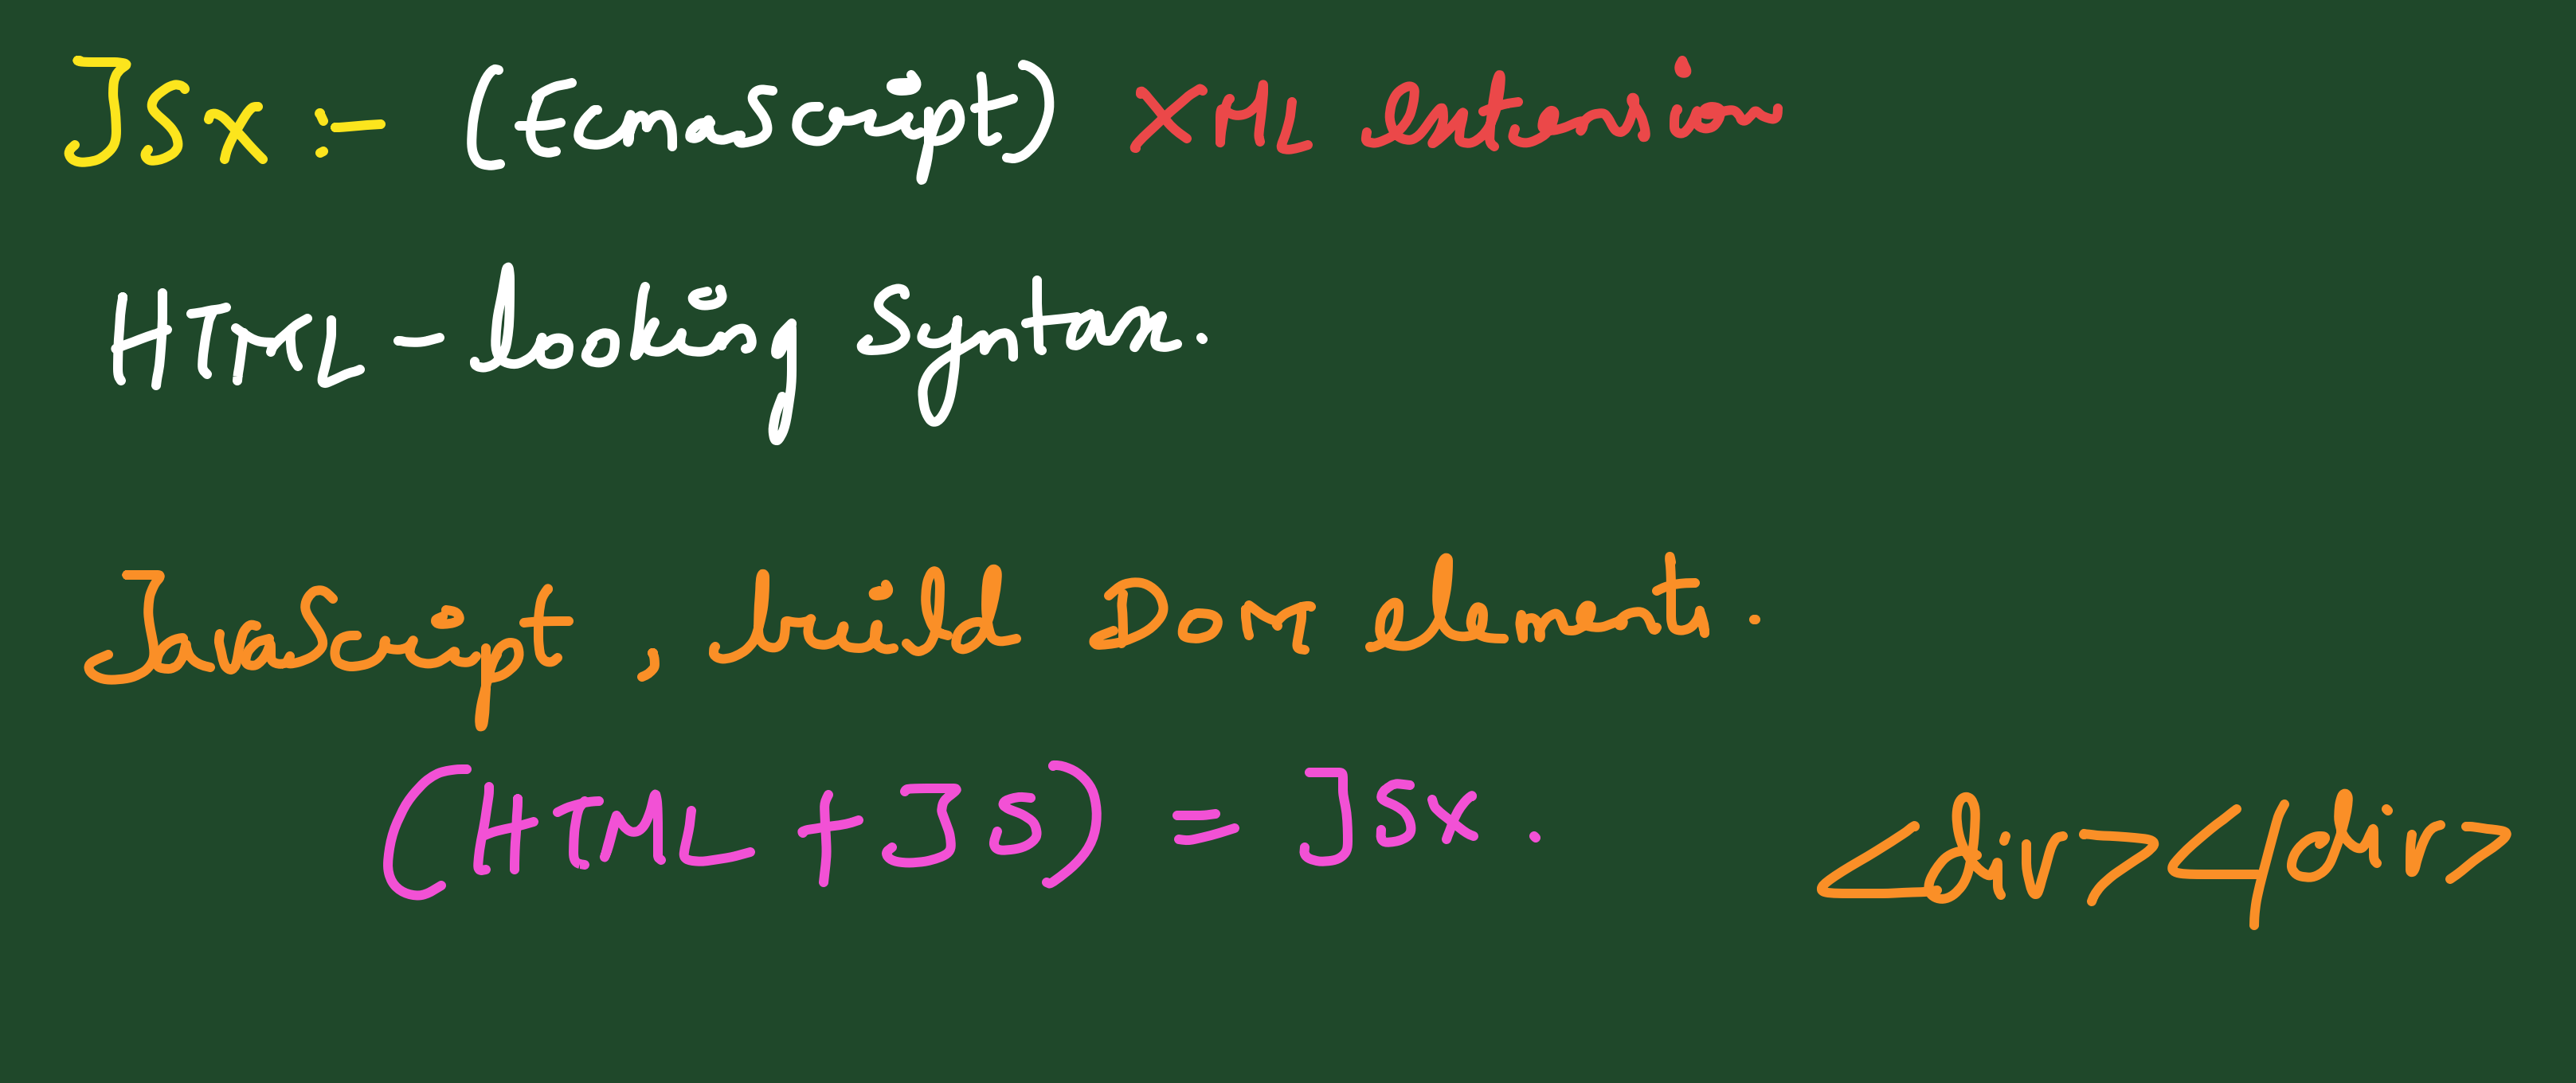 JSX :- (EcmaScript) XML extension
HTML - looking Syntax.
JavaScript, build DOM elements.
(HTML + JS) = JSX. <div></div>